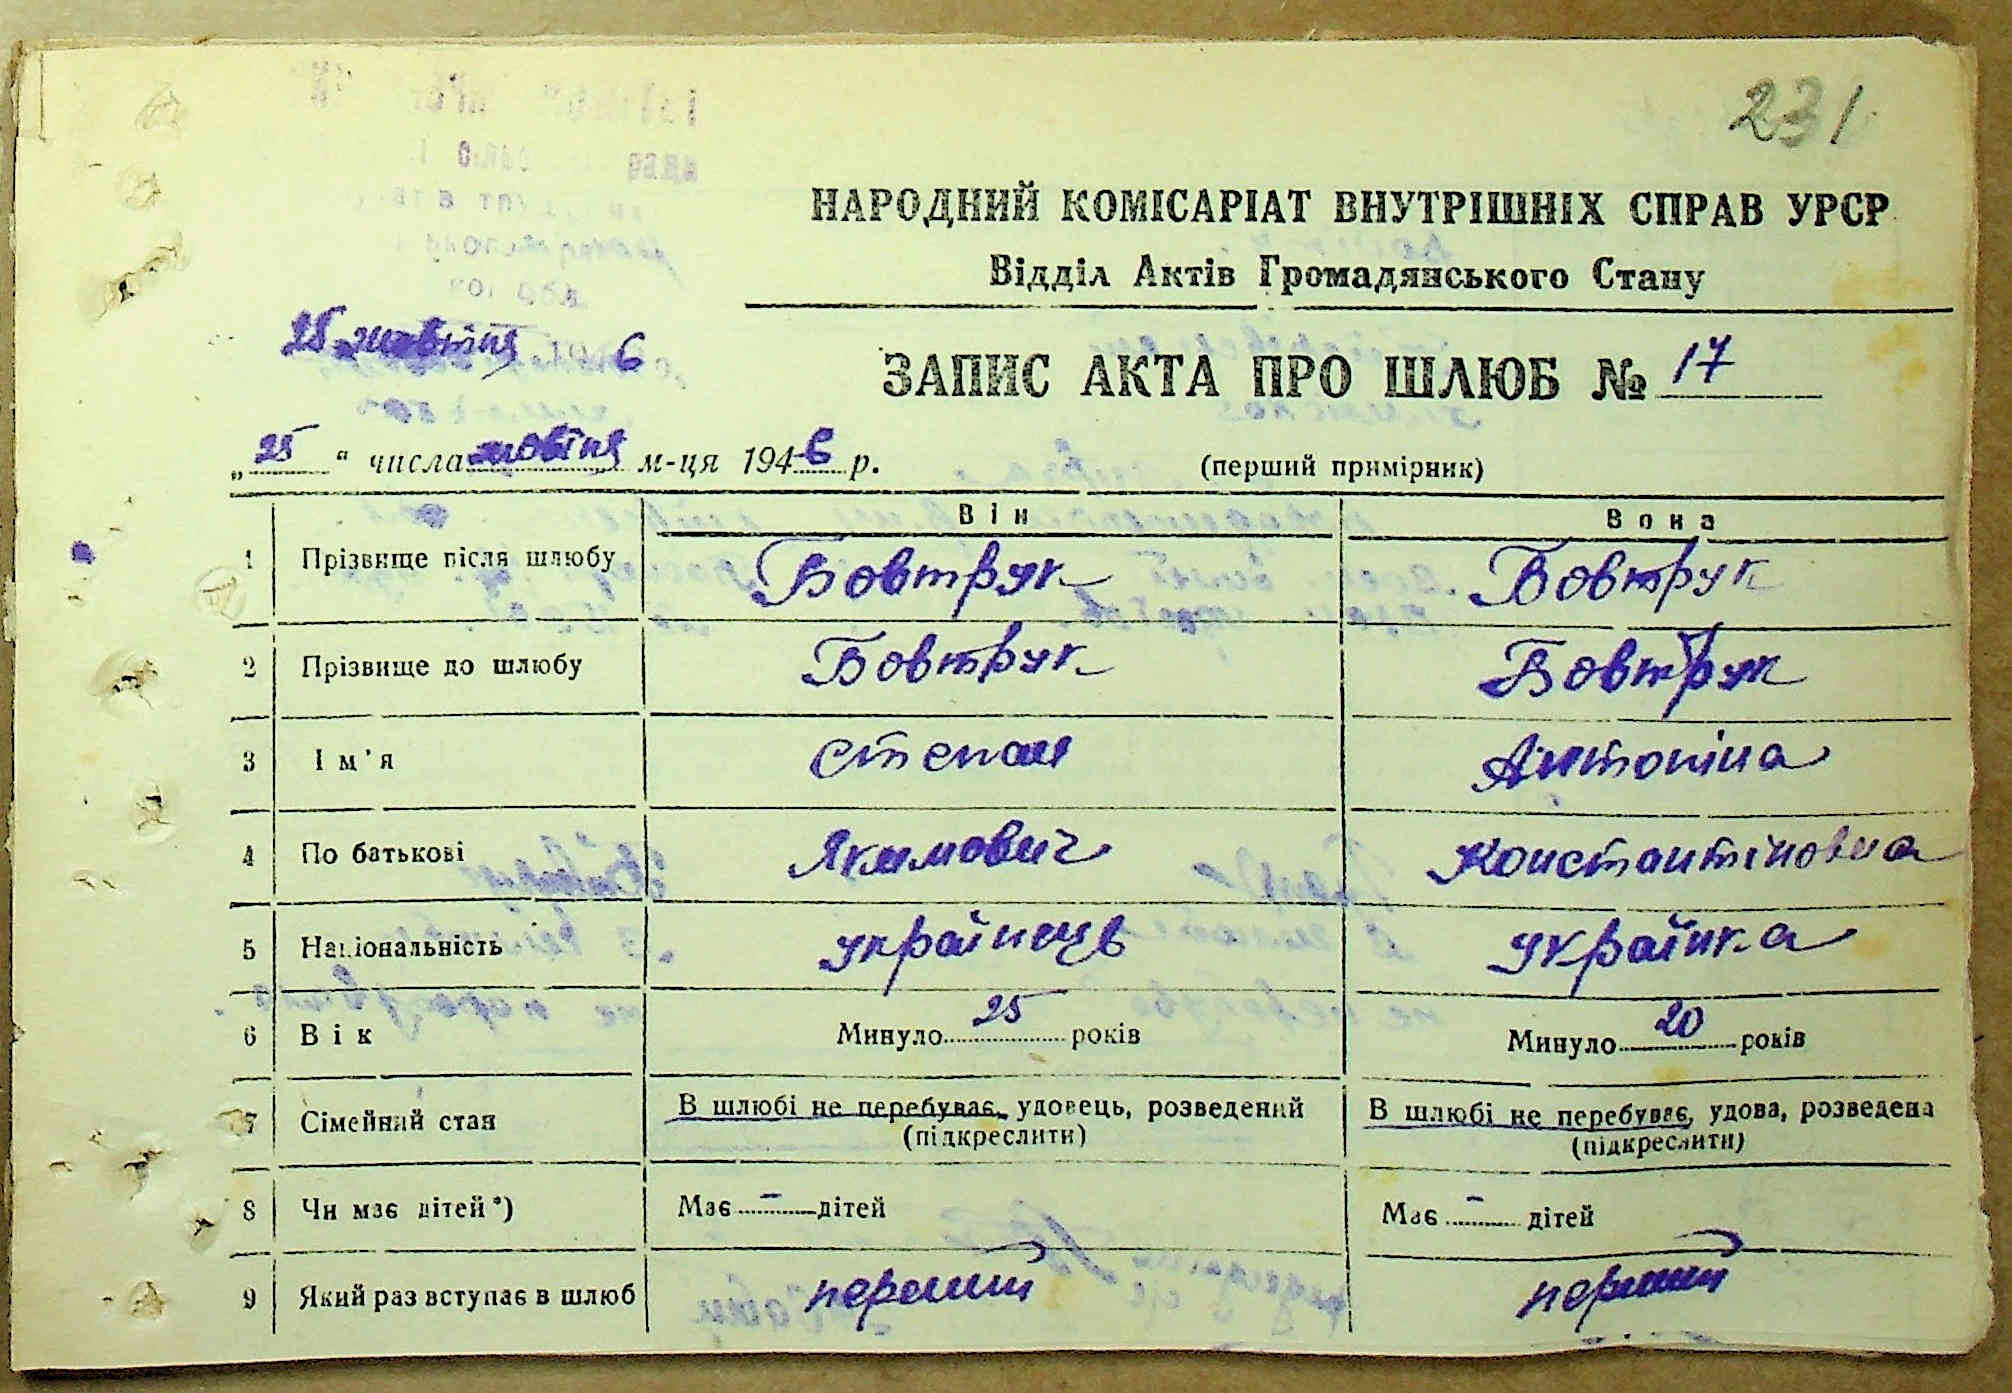 231
НАРОДНИЙ КОМІСАРІАТ ВНУТРІШНІХ СПРАВ УРСР
Відділ Актів Громадянського Стану
25 жовтня 6
ЗАПИС АКТА ПРО ШЛЮБ № 17
„25“ числа жовтня м-ця 1946 р. (перший примірник)
Він Вона
1 Прізвище після шлюбу Бовтрук Бовтрук
2 Прізвище до шлюбу Бовтрук Бовтрук
3 Ім'я Степан Антоніна
4 По батькові Якимович Константіновна
5 Національність українець українка
6 Вік Минуло 25 років Минуло 20 років
7 Сімейний стан В шлюбі не перебуває, удовець, розведений В шлюбі не перебуває, удова, розведена
(підкреслити) (підкреслити)
8 Чи має дітей*) Має - дітей Має - дітей
9 Який раз вступає в шлюб перший перший